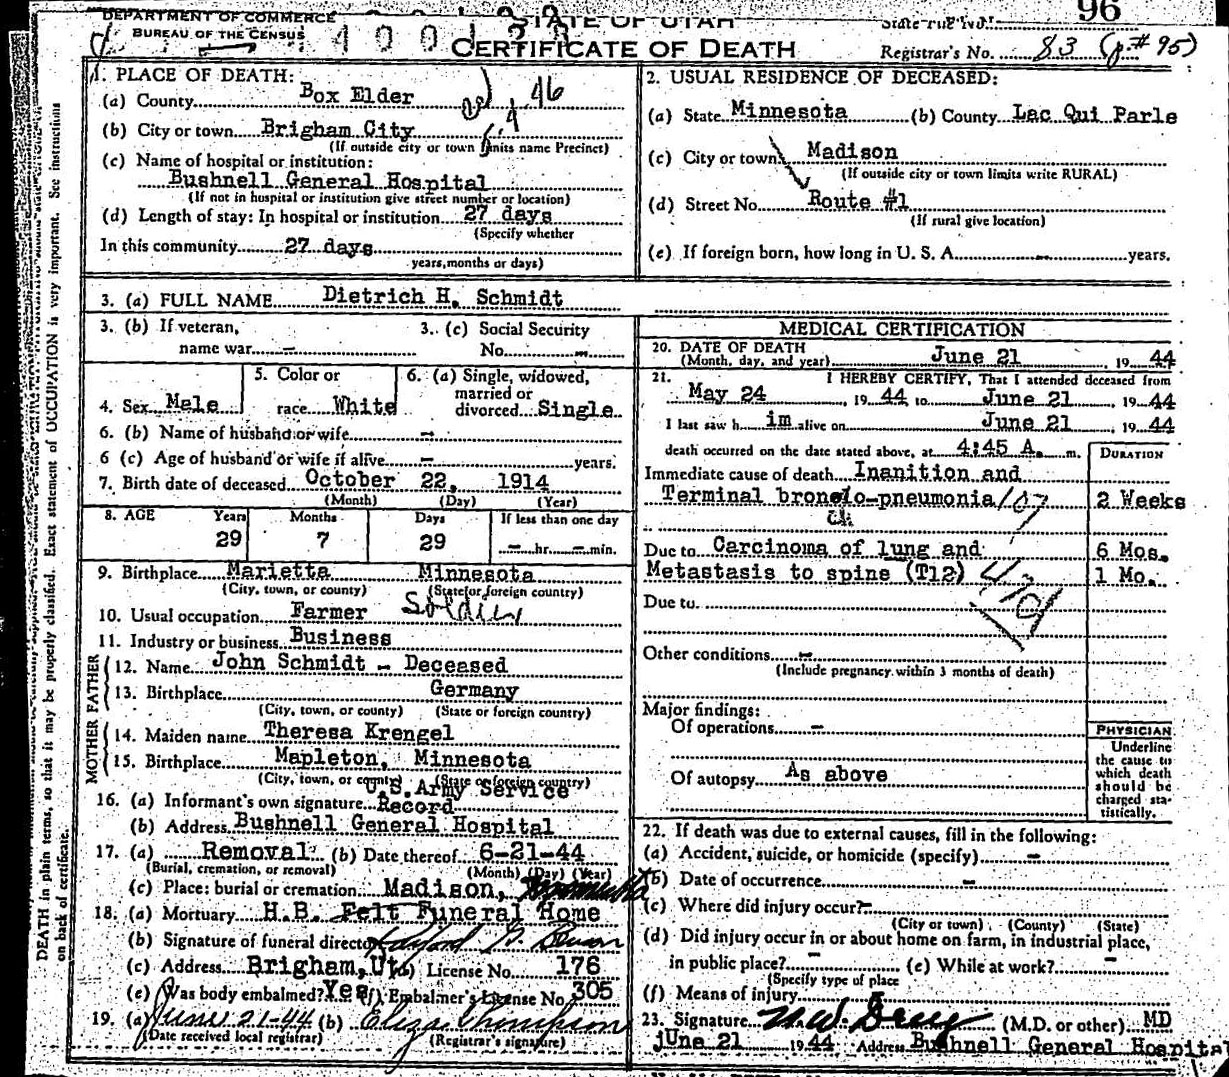 DEPARTMENT OF COMMERCE
BUREAU OF THE CENSUS
STATE OF UTAH
CERTIFICATE OF DEATH
96
State File No.
Registrar's No. 83 (p.# 95)
1. PLACE OF DEATH:
(a) County Box Elder
(b) City or town Brigham City
(If outside city or town limits name Precinct)
(c) Name of hospital or institution:
Bushnell General Hospital
(If not in hospital or institution give street number or location)
(d) Length of stay: In hospital or institution 27 days
(Specify whether
In this community 27 days
years, months or days)
2. USUAL RESIDENCE OF DECEASED:
(a) State Minnesota (b) County Lac Qui Parle
(c) City or town Madison
(If outside city or town limits write RURAL)
(d) Street No. Route #1
(If rural give location)
(e) If foreign born, how long in U. S. A. - years.
3. (a) FULL NAME Dietrich H. Schmidt
3. (b) If veteran, name war -
3. (c) Social Security No. -
4. Sex Male
5. Color or race White
6. (a) Single, widowed, married or divorced Single
6. (b) Name of husband or wife -
6 (c) Age of husband or wife if alive - years.
7. Birth date of deceased October 22, 1914
(Month) (Day) (Year)
8. AGE Years Months Days If less than one day
29 7 29 - hr. - min.
9. Birthplace Marietta Minnesota
(City, town, or county) (State or foreign country)
10. Usual occupation Farmer Soldier
11. Industry or business Business
FATHER
12. Name John Schmidt - Deceased
13. Birthplace Germany
(City, town, or county) (State or foreign country)
MOTHER
14. Maiden name Theresa Krengel
15. Birthplace Mapleton, Minnesota
(City, town, or county) (State or foreign country)
16. (a) Informant's own signature U.S. Army Service Record
(b) Address Bushnell General Hospital
17. (a) Removal (b) Date thereof 6-21-44
(Burial, cremation, or removal) (Month) (Day) (Year)
(c) Place: burial or cremation Madison, Minnesota
18. (a) Mortuary H.B. Felt Funeral Home
(b) Signature of funeral director
(c) Address Brigham, Ut. (d) License No. 176
(e) Was body embalmed? Yes (f) Embalmer's License No. 305
19. (a) June 21-44 (b) Eliza Thompson
(Date received local registrar) (Registrar's signature)
MEDICAL CERTIFICATION
20. DATE OF DEATH
(Month, day, and year) June 21 19 44
21. I HEREBY CERTIFY, That I attended deceased from
May 24, 19 44 to June 21, 19 44
I last saw h im alive on June 21, 19 44
death occurred on the date stated above, at 4:45 A. m.
DURATION
Immediate cause of death Inanition and
Terminal broncio-pneumonia 107 2 Weeks
ch
Due to Carcinoma of lung and 6 Mos.
Metastasis to spine (T12) 1 Mo.
Due to
Other conditions -
(Include pregnancy within 3 months of death)
Major findings:
Of operations -
Of autopsy As above
PHYSICIAN
Underline
the cause to
which death
should be
charged sta-
tistically.
22. If death was due to external causes, fill in the following:
(a) Accident, suicide, or homicide (specify) -
(b) Date of occurrence -
(c) Where did injury occur? -
(City or town) (County) (State)
(d) Did injury occur in or about home on farm, in industrial place,
in public place? - (e) While at work? -
(Specify type of place
(f) Means of injury
23. Signature (M.D. or other) MD
June 21 1944 Address Bushnell General Hospital
DEATH in plain terms, so that it may be properly classified. Exact statement of OCCUPATION is very important. See instruction
on back of certificate.